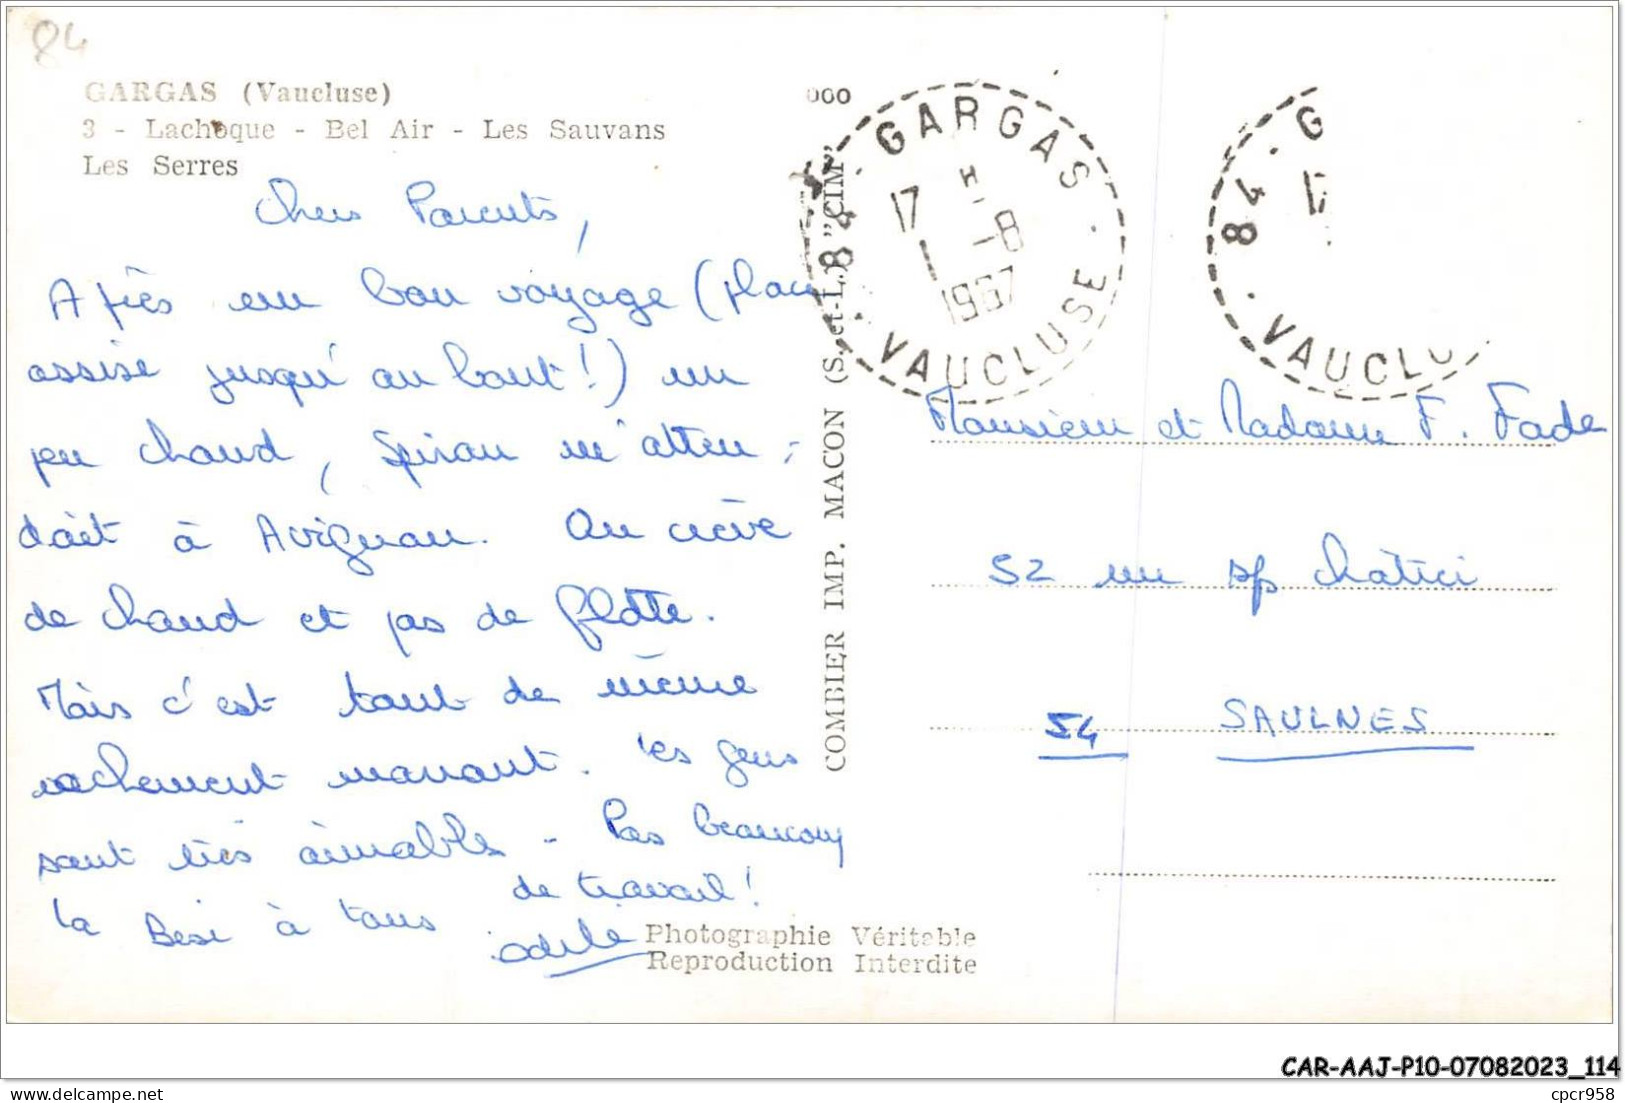 84
GARGAS (Vaucluse)
3 - Lachoque - Bel Air - Les Sauvans
Les Serres
Chers Parents,
Après un bon voyage (place
assise jusqu'au bout!) un
peu chaud, m'atten-
dait à Avignon. On crève
de chaud et pas de flotte.
Mais c'est tout de même
vachement marrant. Les gens
sont très aimables - Pas beaucoup
de travail!
à tous
Odile
COMBIER IMP. MACON (S.-et-L.) "CIM"
GARGAS
17
-8
1967
84 VAUCLUSE
G
17
84 VAUCLU
Monsieur et Madame F. Fade
52
54 SAULNES
Photographie Véritable
Reproduction Interdite
CAR-AAJ-P10-07082023_114
cpcr958